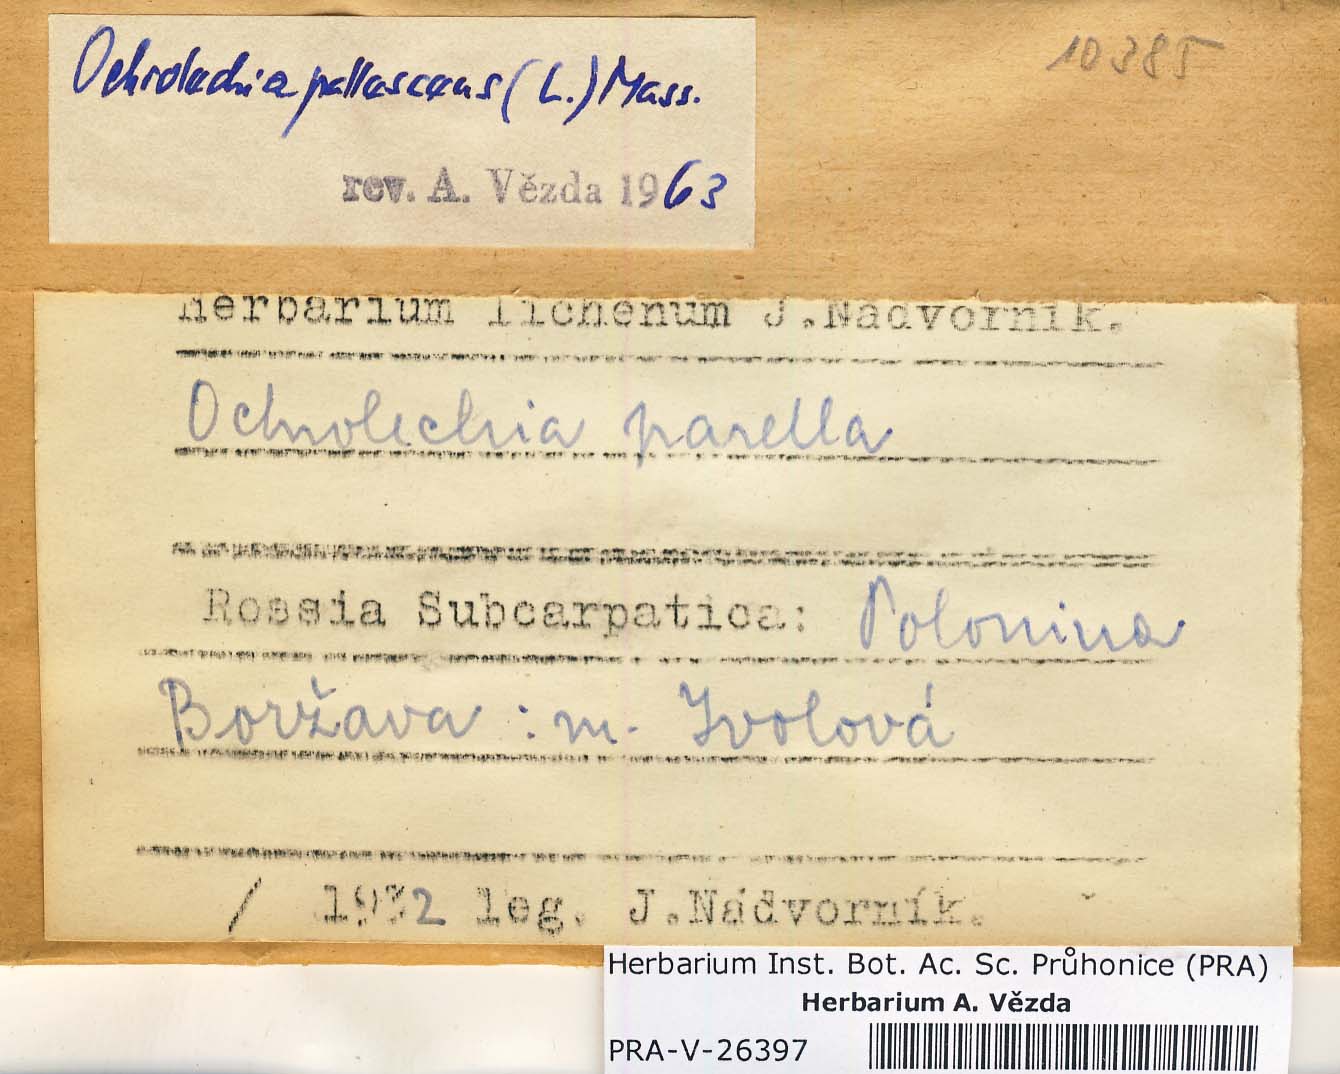 Ochrolechia pallescens (L.) Mass.
10385
rev. A. Vězda 1963
Herbarium lichenum J.Nádvorník.
Ochrolechia parella
Rossia Subcarpatica: Polonina
Boržava : m. Yvolová
/ 1932 leg. J.Nádvorník.
Herbarium Inst. Bot. Ac. Sc. Průhonice (PRA)
Herbarium A. Vězda
PRA-V-26397